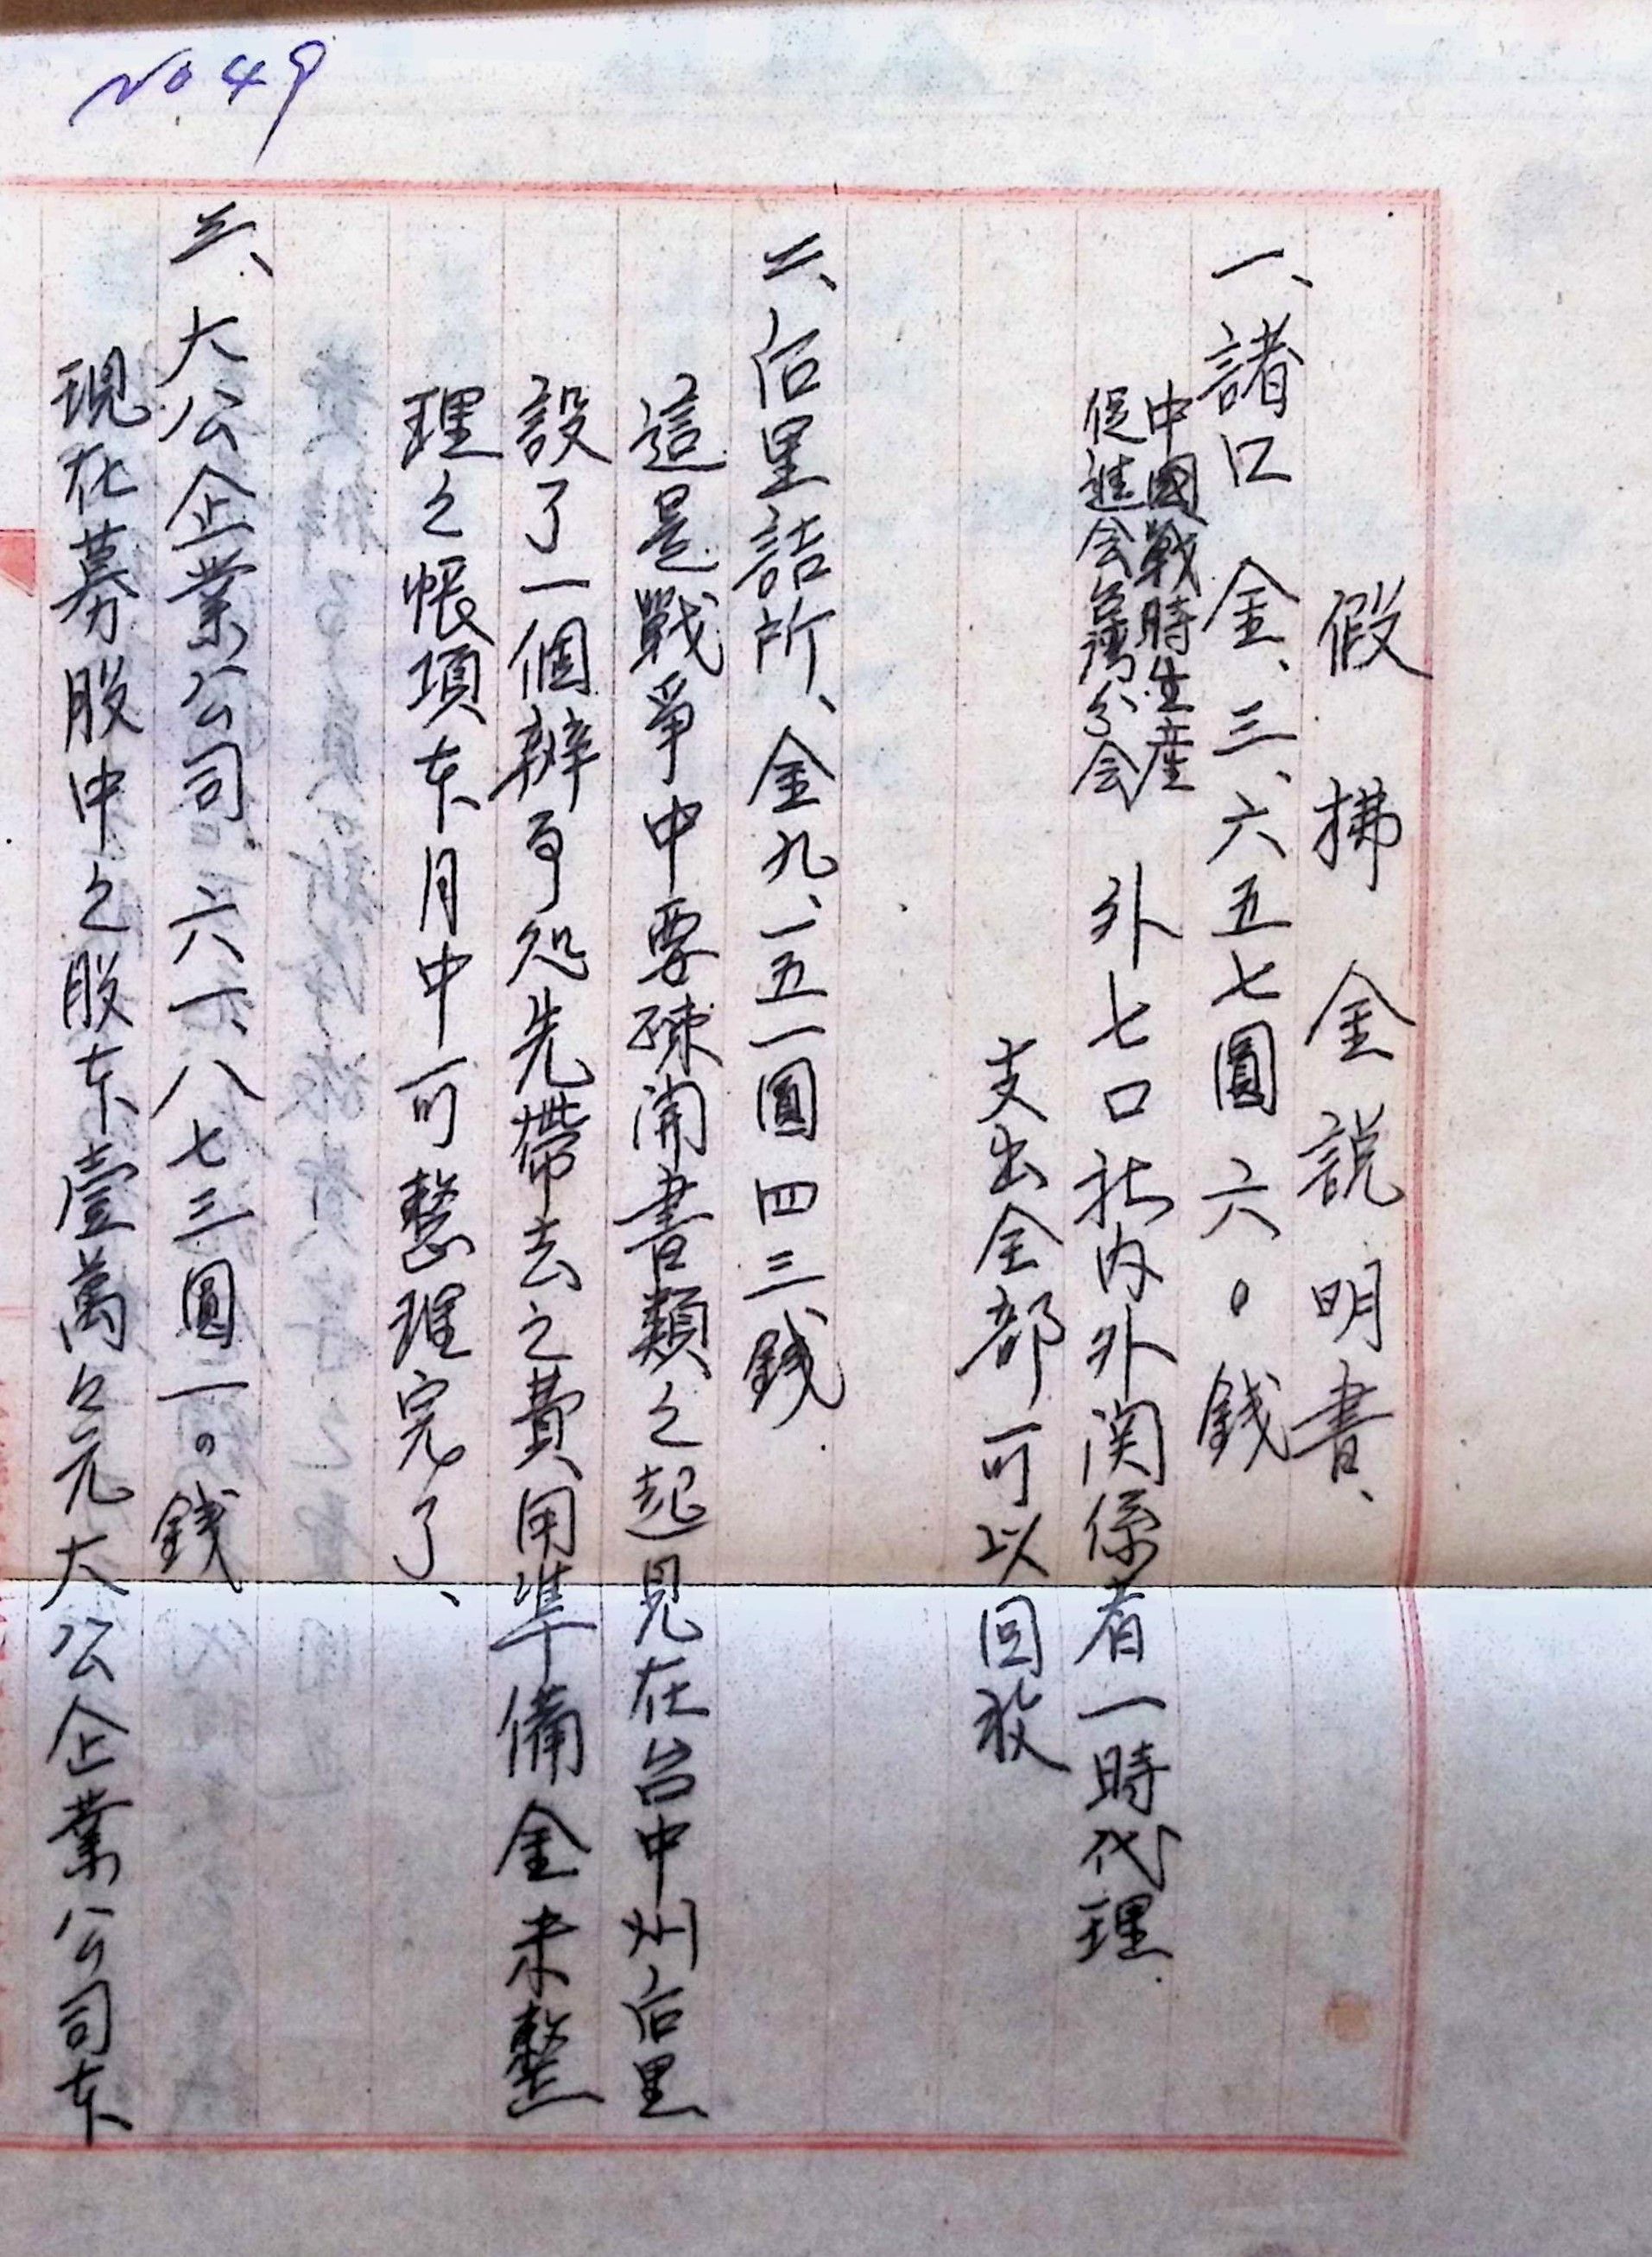 No 49
假拂金説明書、
一、諸口 金、三、六五七圓六〇錢
中國戰時生産
促進会台灣分会 外七口社内外関係者一時代理
支出全部可以回收
二、后里詰所、金九、一五一圓四三錢
這是戰爭中要疎開書類之起見在台中州后里
設了一個辦事処先帶去之費用準備金未整
理之帳項本月中可整理完了、
三、大公企業公司 六一、八七三圓一〇錢
現在募股中之股本壹萬〻元大公企業公司本